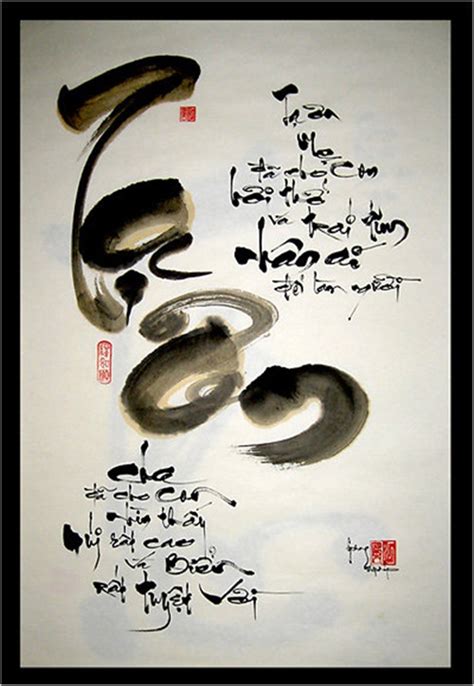 Tạ
ơn
Tạ ơn
Mẹ
đã cho Con
hơi thở
và trái tim
nhân ái
để làm người
Cha
đã cho Con
nhìn thấy
rất cao
và Biển
rất tuyệt vời